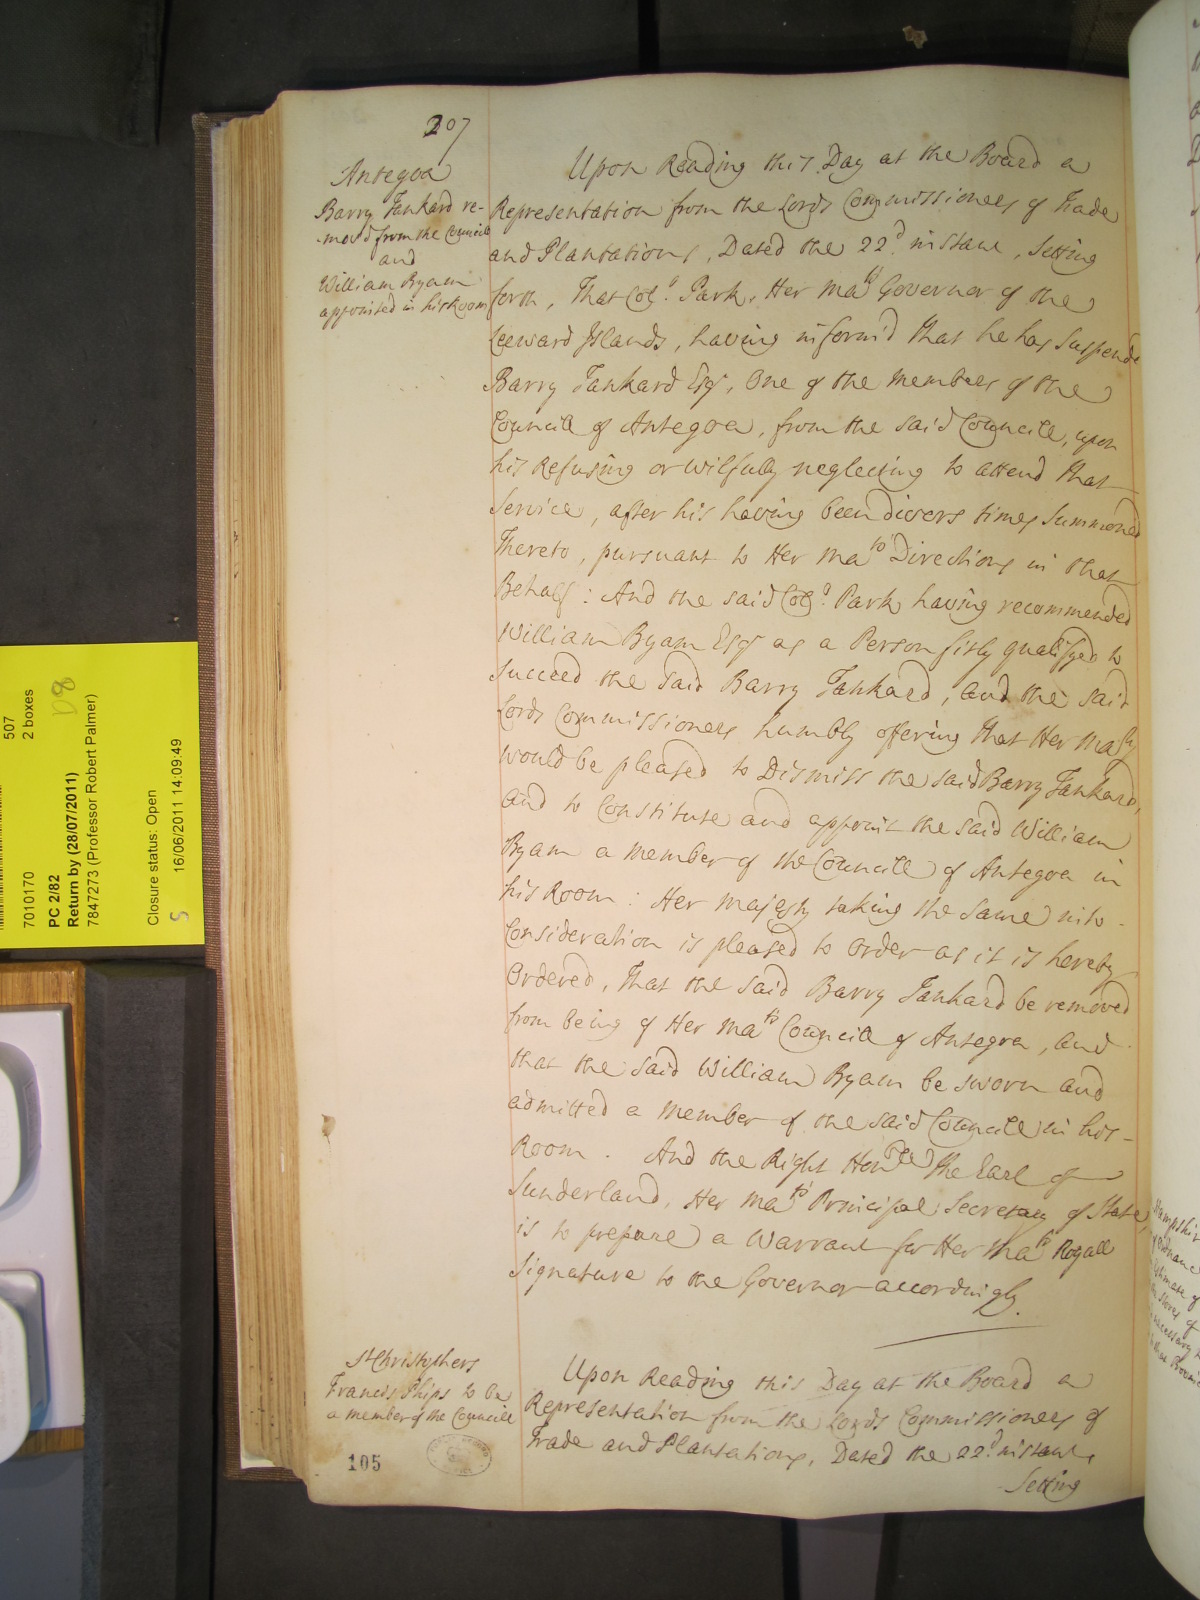 207
Antegoa
Barry Tankard re-
-mov'd from the Councill
and
William Byam
appointed in his Room
Upon Reading this Day at the Board a
Representation from the Lords Commissioners of Trade
and Plantations, Dated the 22d instant, Setting
forth, That Coll. Park, Her Mats Governor of the
Leeward Islands, having inform'd that he has Suspended
Barry Tankard Esqr, One of the Members of the
Councill of Antegoa, from the said Councill, upon
his Refusing or wilfully neglecting to attend that
Service, after his having been divers times Summoned
Thereto, pursuant to Her Mats Directions in that
Behalf: And the said Coll. Park having recommended
William Byam Esqr as a Person fitly qualifyed to
Succeed the said Barry Tankard, and the said
Lords Commissioners humbly offering that Her Maty
would be pleased to Dismiss the said Barry Tankard,
and to Constitute and appoint the said William
Byam a Member of the Councill of Antegoa in
his Room: Her Majesty taking the same into
Consideration is pleased to Order as it is hereby
Ordered, That the said Barry Tankard be removed
from being of Her Mats Councill of Antegoa, and
that the said William Byam be sworn and
admitted a Member of the said Councill in his
Room. And the Right Honble the Earl of
Sunderland, Her Mats Principal Secretary of State,
is to prepare a Warrant for Her Mats Royall
Signature to the Governor accordingly.
St Christophers
Francis Phips to be
a member of the Councill
Upon Reading this Day at the Board a
Representation from the Lords Commissioners of
Trade and Plantations, Dated the 22d instant,
Setting
105
507
2 boxes
D8
7010170
PC 2/82
Return by (28/07/2011)
7847273 (Professor Robert Palmer)
Closure status: Open
16/06/2011 14:09:49
S